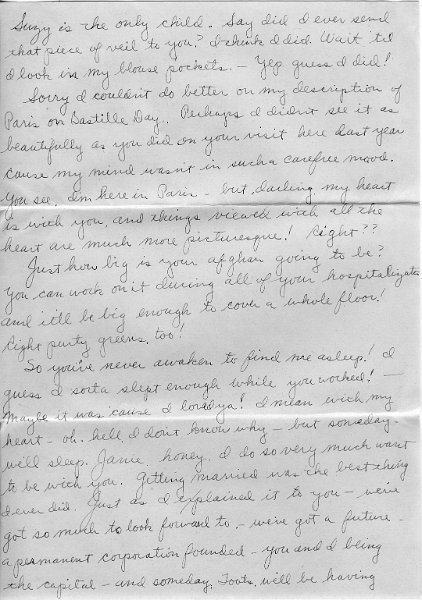 Suzy is the only child. Say did I ever send
that piece of veil to you? I think I did. Wait 'til
I look in my blouse pockets. - Yep guess I did!
Sorry I couldn't do better on my description of
Paris on Bastille Day. Perhaps I didn't see it as
beautifully as you did on your visit here last year
cause my mind wasn't in such a carefree mood.
You see, I'm here in Paris - but, darling my heart
is with you, and things viewed with all the
heart are much more picturesque! Right??
Just how big is your afghan going to be?
You can work on it during all of your hospitalization
and it'll be big enough to cover a whole floor!
Right purty greens, too!
So you've never awaken to find me asleep! I
guess I sorta slept enough while you worked! -
Maybe it was 'cause I loved ya! I mean with my
heart - oh, hell, I don't know why - but someday
we'll sleep. Janie, honey, I do so very much want
to be with you. Getting married was the best thing
I ever did. Just as I explained it to you - we've
got so much to look forward to, - we've got a future -
a permanent corporation founded - you and I being
the capital - and someday, Toots, will be having